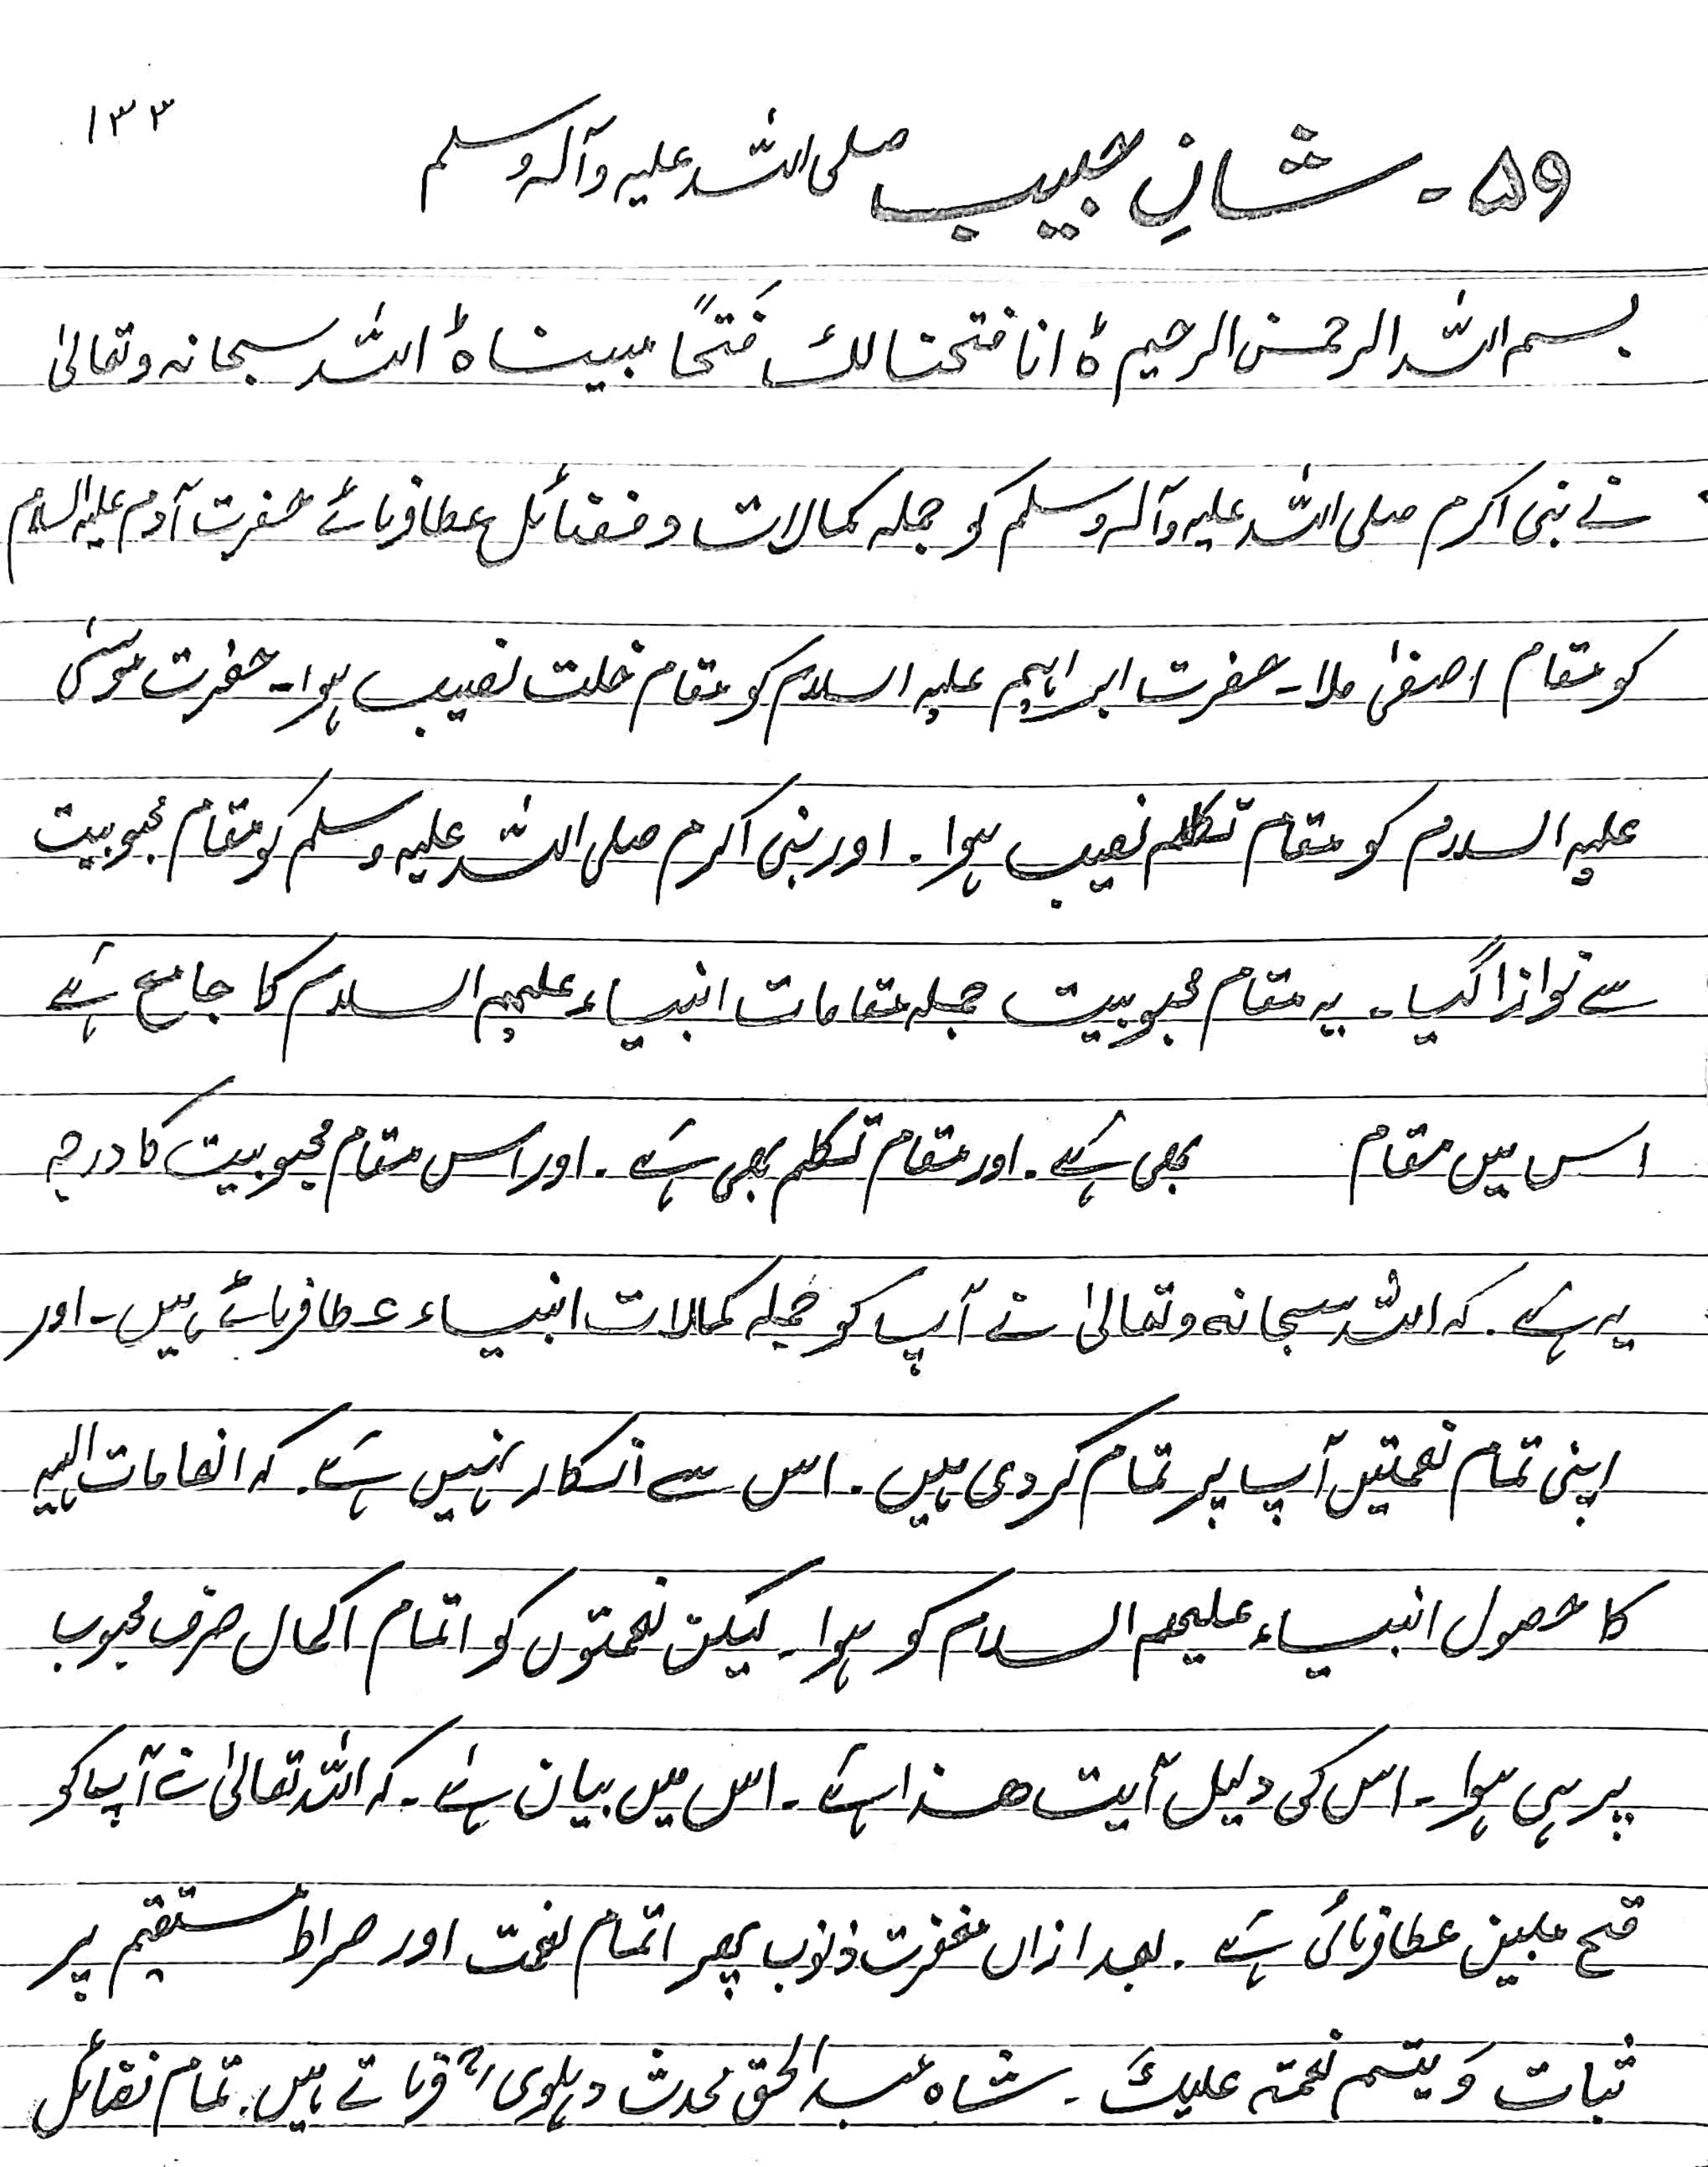 ۱۳۳
۵۹ - شانِ حبیب صلی اللہ علیہ وآلہ وسلم
بسم اللہ الرحمٰن الرحیم ہ انا فتحنا لک فَتحًا مبینا ہ اللہ سبحانہ وتعالیٰ
نے نبی اکرم صلی اللہ علیہ وآلہ وسلم کو جملہ کمالات و فضائل عطا فرمائے حضرت آدم علیہ السلام
کو مقام اصفیٰ ملا۔ حضرت ابراہیم علیہ السلام کو مقام خلت نصیب ہوا۔ حضرت موسیٰ
علیہ السلام کو مقام تکلم نصیب ہوا۔ اور نبی اکرم صلی اللہ علیہ وسلم کو مقام محبوبیت
سے نوازا گیا۔ یہ مقام محبوبیت جملہ مقامات انبیاء علیہم السلام کا جامع ہے
اس میں مقام بھی ہے۔ اور مقام تکلم بھی ہے۔ اور اس مقام محبوبیت کا درجہ
یہ ہے۔ کہ اللہ سبحانہ وتعالیٰ نے آپ کو جملہ کمالات انبیاء عطا فرمائے ہیں۔ اور
اپنی تمام نعمتیں آپ پر تمام کر دی ہیں۔ اس سے انکار نہیں ہے۔ کہ انعامات الہیہ
کا حصول انبیاء علیھم السلام کو ہوا۔ لیکن نعمتوں کو اتمام اکمال صرف محبوب
پر ہی ہوا۔ اس کی دلیل آیت ھذا ہے۔ اس میں بیان ہے۔ کہ اللہ تعالیٰ نے آپ کو
فتح مبین عطا فرمائی ہے۔ بعد ازاں مغفرت ذنوب پھر اتمام نعمت اور صراط مستقیم پر
ثبات وَ یتم نعمتہ علیکَ۔ شاہ عبد الحق محدث دہلویؒ فرماتے ہیں۔ تمام فضائل